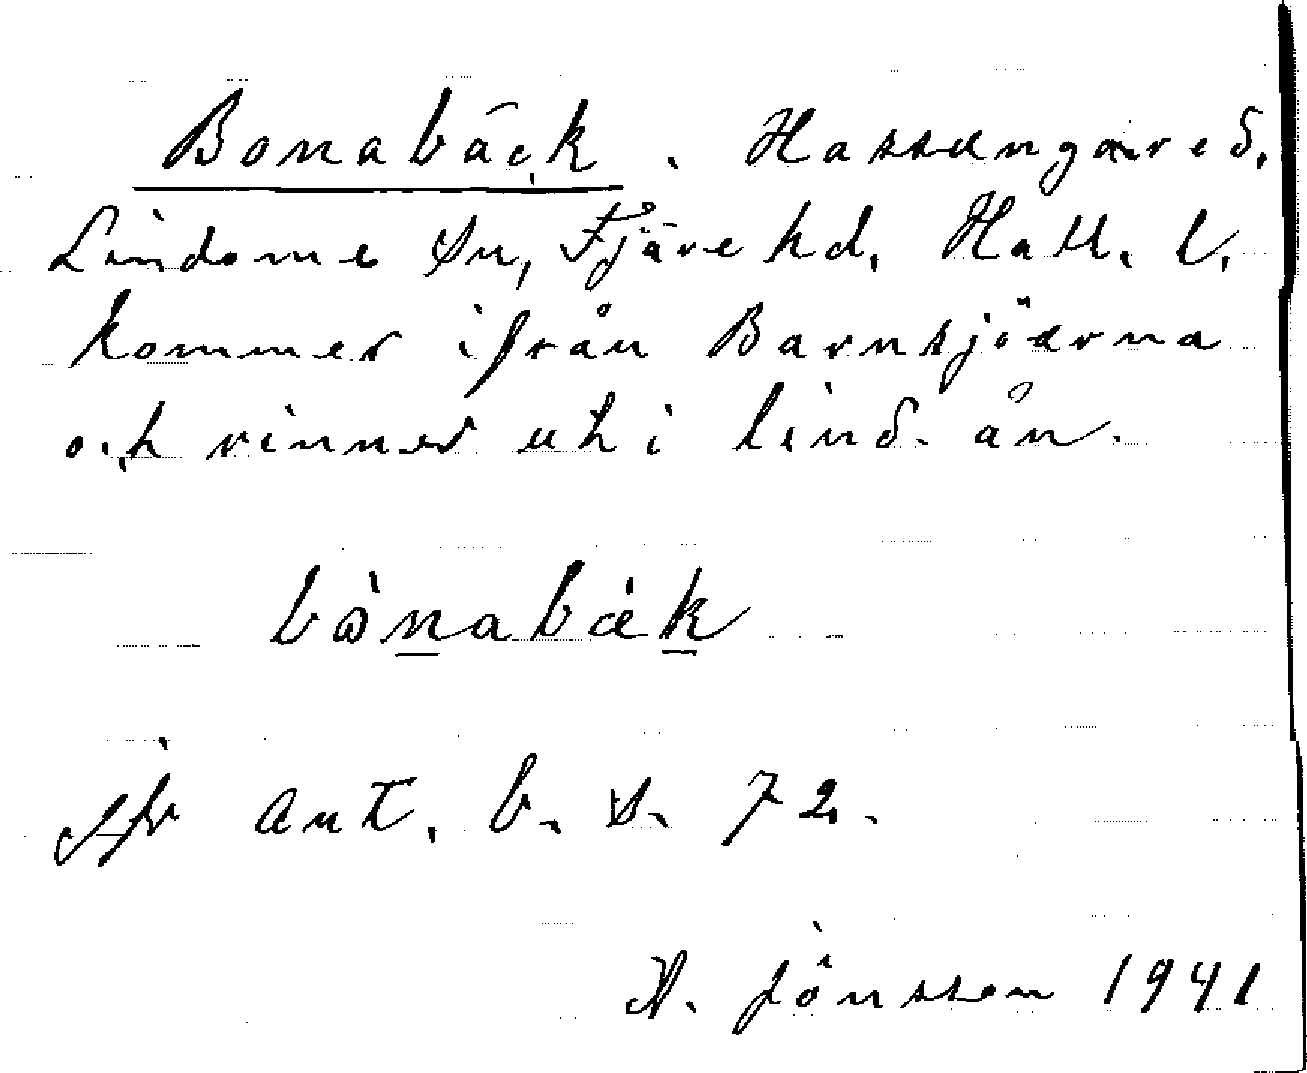 Bonabäck. Hassungared,
Lindome sn, Fjäre hd, Hall. l.
kommer ifrån Barnsjöarna
och rinner ut i lind. ån.
bònabæk
ant. b. s. 72.
A. Jönsson 1941